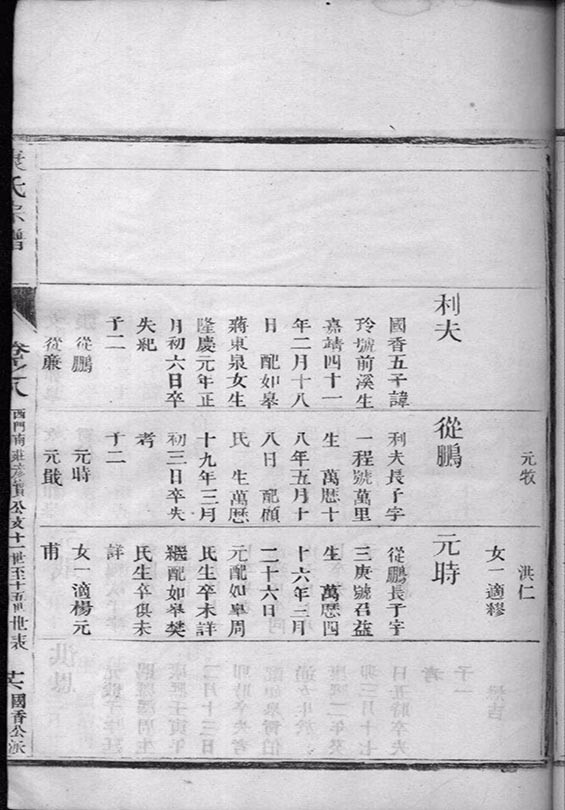 元牧
洪仁
女一適繆
利夫
國香五子諱
玲號前溪生
嘉靖四十一
年二月十八
日 配如皋
蔣東泉女生
隆慶元年正
月初六日卒
失紀
子二
從鵬
從廉
從鵬
利夫長子字
一程號萬里
生 萬曆十
八年五月十
八日 配顧
氏 生萬曆
十九年三月
初三日卒失
考
子二
元時
元戩
元時
從鵬長子字
三庚號召益
生 萬曆四
十六年三月
二十六日
元配如皋周
氏生卒未詳
繼配如皋樊
氏生卒俱未
詳
女一適楊元
甫
氏宗譜
卷之八
西門南莊
公支十一世至十五世世表
國香公派